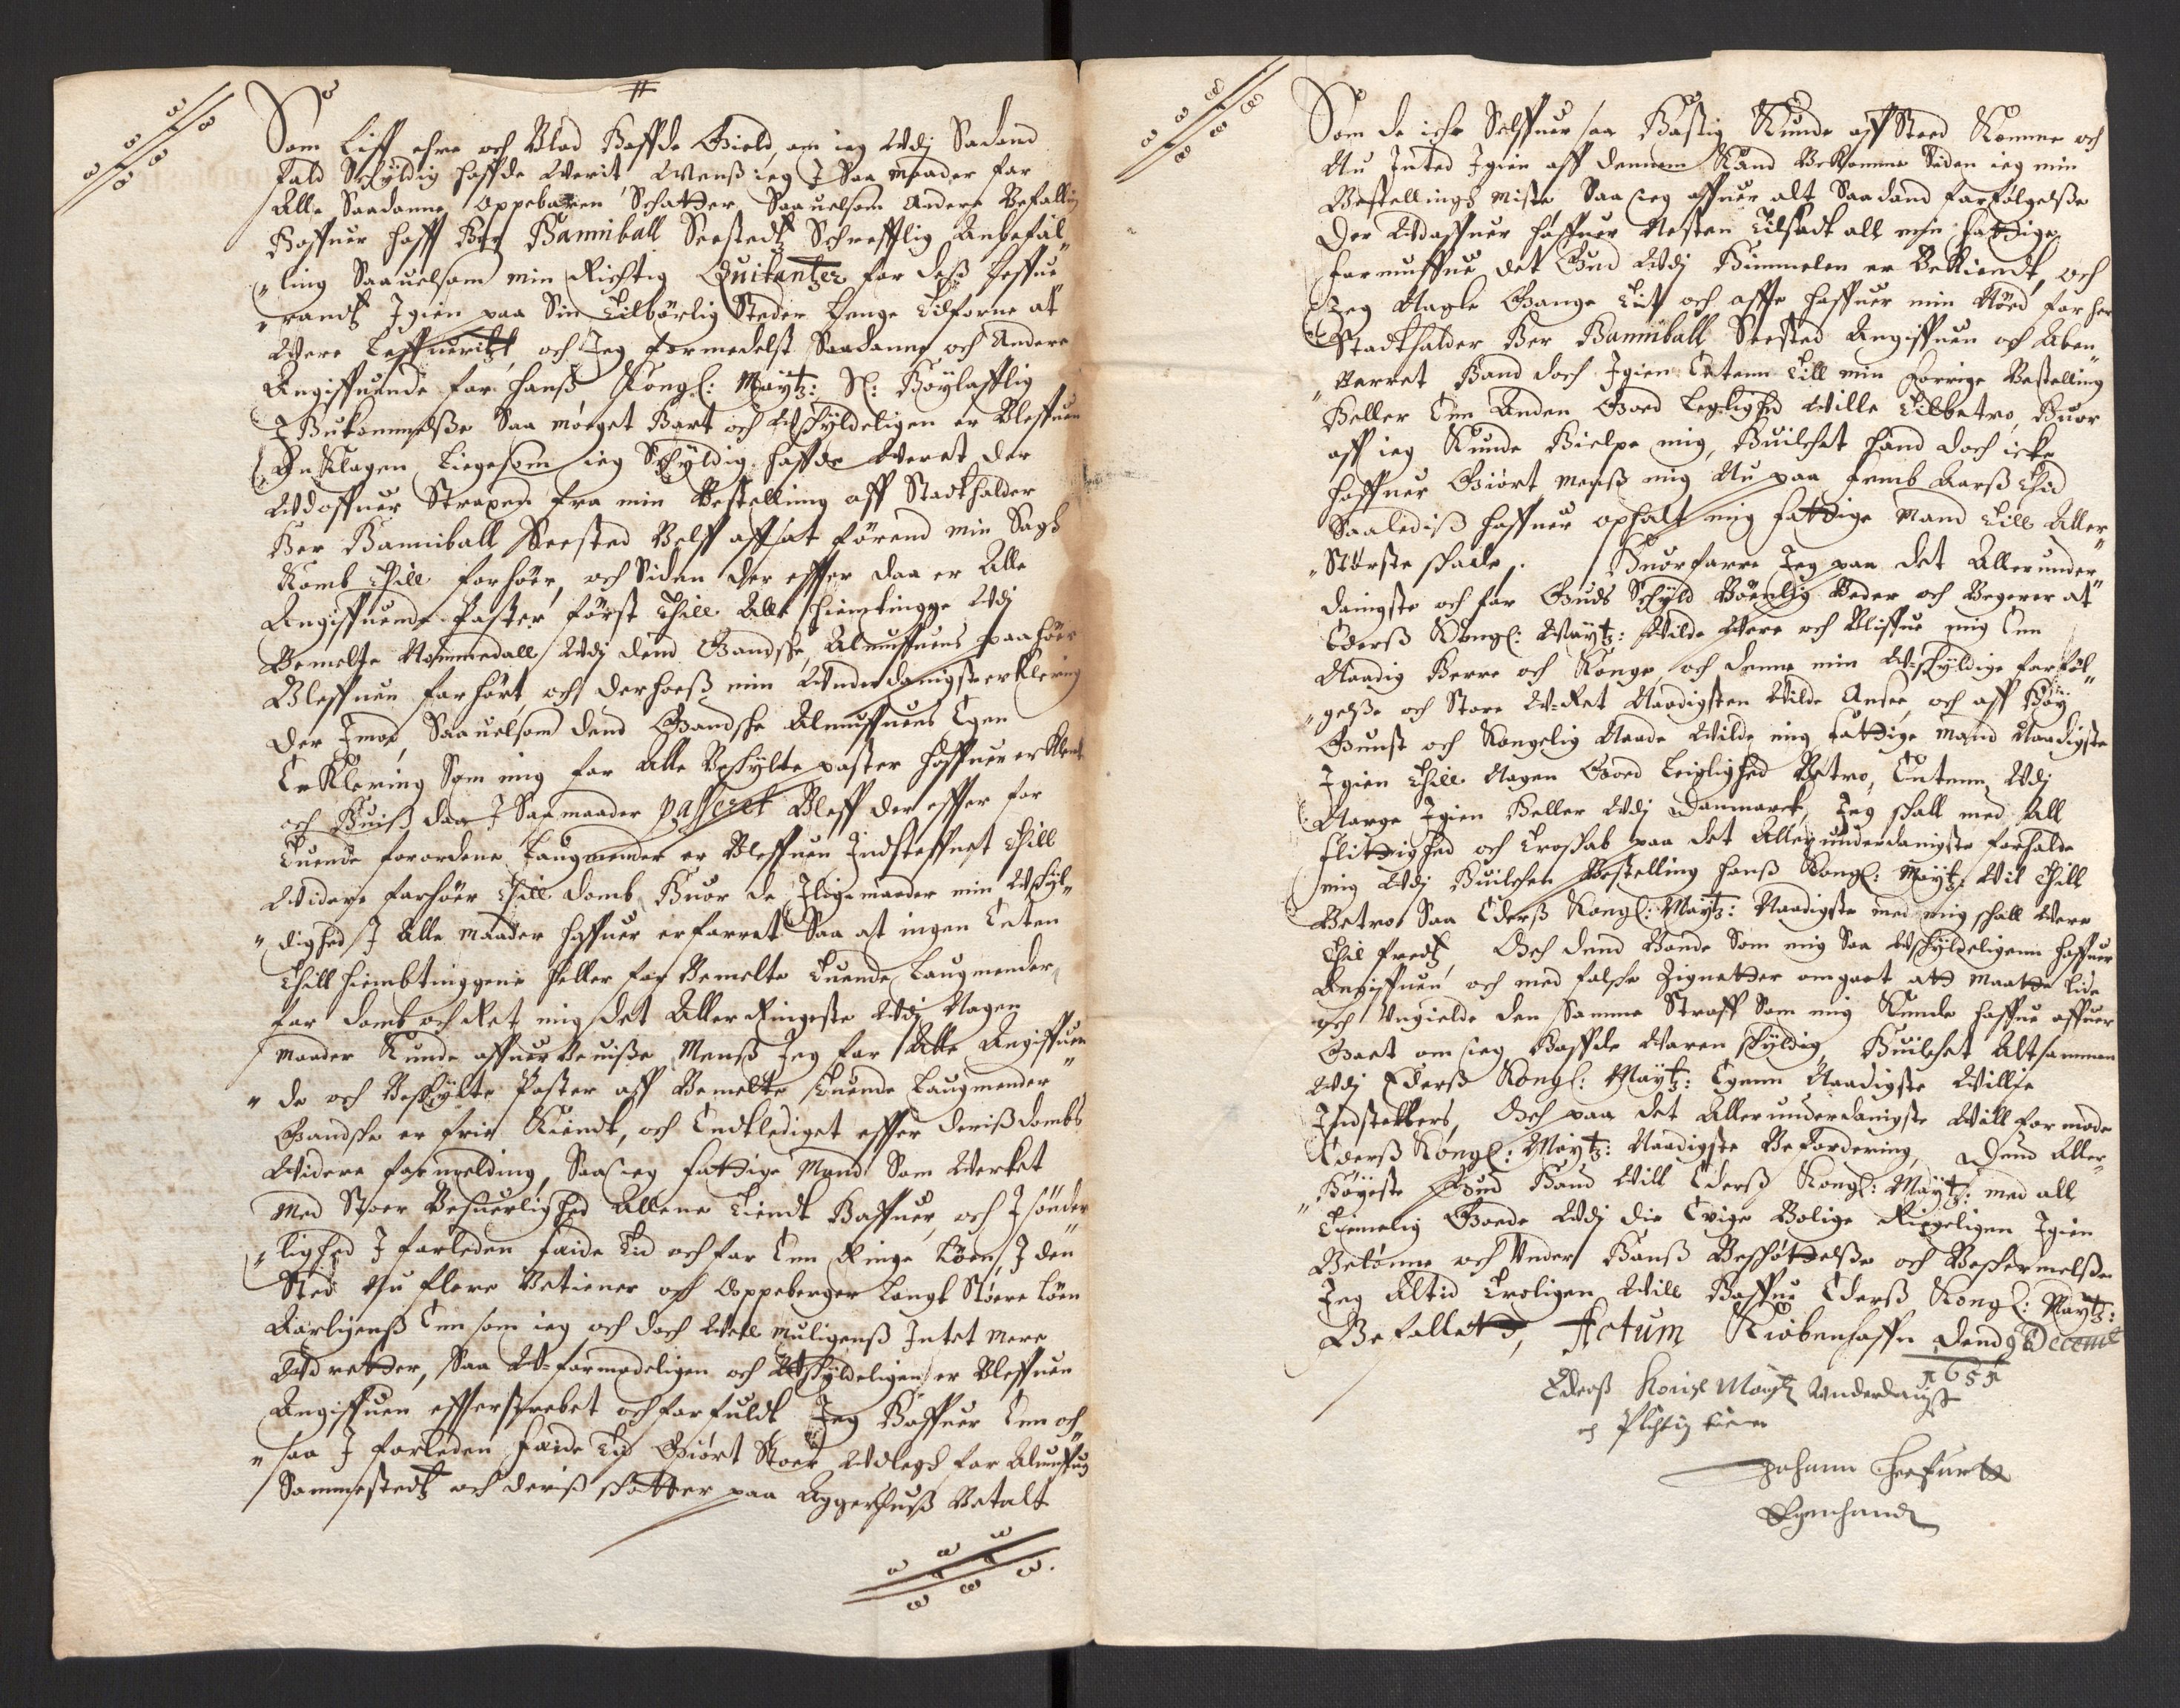 Som Liff ehre och Blod Haffde Gield, om ieg Udj Sadand
fald Schÿldig haffde Verit Mens ieg J Saa maader for
Alle Saadanne Oppebaaren Schatter Saauelsom Andere Befalling
Haffuer hafft Her Hanniball Seestedtz Schrefftlig Anbefal„
„ling Saauelsom min Rigtig Quitantzer for dess leffue„
„randtz Jgien paa Sin Tilbörlig Steder lenge Tilforne at
Were leffueritzt, och Jeg formedelst Saadanne och Andere
Angiffuende for hanss Kongl: Maÿtz: S: Höÿlofflig
Jhukommelsse Saa möeget Hart och Uschÿldeligen er Bleffuen
An Klagen Ligesom ieg Schÿldig haffde Veret der
Udoffuer Straxens fra min Bestelling aff Stadtholder
Her Hanniball Seested Bleff affsat förend min Sagh
Komb Thill forhöer, och Siden der effter daa er Alle
Angiffuende Poster först Thill Alle hiemtingge Udj
Bemelte Nommedall Udj dend Gandsche Almuffuens paahöer
Bleffuen forhört, och derhoess min Underdanigste erklering
der Jmod, Saauelsom dend Gandsche Almuffuens Egen
Erklering Som mig for Alle Beschÿlte poster haffuer erklert
och Huiss daa J Saa maader passeret Bleff der effter for
Tuende forordene Laugmender er Bleffuen Jndsteffnet Thill
Videre forhöer Thill domb, Huor de Jligemaader min Uschÿl„
„dighed J Alle maader haffuer erfarret Saa at ingen Enten
Thill hiembtinggene heller for Bemelte Tuende Laugmender
for domb och Ret mig det Aller Ringeste Udj Nogen
Maader Kunde offuer Beuisse, Menss Jeg for Alle Angiffuen„
„de och Beschÿlte Poster aff Bemelte Tuende Laugmender
Gandsche er frie Kiendt, och Endtlediget effter deriss dombs
Videre formelding, Saa ieg fattige Mand Som Verket
med Stoer Besuerlighed Allene Tiendt Haffuer, och J sönder„
„lighed J forleden feide Tid och for Een Ringe löen, J den
Sted Nu flere Betiener och Oppeberger langt Större löen
Aarligenss Een som ieg och doch Vell muligenss Jntet mere
Udretter, Saa U-formodeligen och Uschÿldeligen er Bleffuen
Angiffuen efftersterebet och forfuldt Jeg Haffuer Een och„
„saa J forleden Feide Tid Giört Stoer Udlegh for Almuffuen
Sammestedtz och deriss schatter paa Aggershuss Betalt
Som de iche Selffuer saa Hastig Kunde aff Sted Komme och
Nu Jnted Jgien aff dennem Kand Bekomme Siden ieg min
Bestellings miste Saa ieg offuer alt Saadand forfölgelsse
der Udoffuer haffuer Nesten Tilsadt all min fattige
formuffue, det Gud Udj Himmelen er Bekiendt, och
Jeg Nogle Gange Tit och offte haffuer min Nöed for her
Stadtholder Her Hanniball Seested Angiffuen och Aben„
„barret Hand doch Jgien Enten Till min forrige Bestelling
Heller Een Anden Goed Leglighed Ville Tilbetro, Huor
aff ieg Kunde Hielpe mig, Huilchet Hand doch icke
haffuer Giört, menss mig Nu paa femb Aarss Tid
Saalediss haffuer ophalt mig fattige Mand Till Aller„
„Störste schade. Huorforre Jeg paa det Allerunder„
danigste och for Guds Schÿld Böenlig Beder och Begerer at
Ederss Kongl: Maÿtz: Vilde Vere och Bliffue mig Een
Naadig Herre och Konge, och denne min U-schÿldige forföl„
„gelsse och Store U-Ret Naadigsten Vilde Ansee, och aff Höÿ
Gunst och Kongelig Naade Vilde mig fattige mand Naadigste
Jgien Thill Nogen Goed Leiglighed Betro, Enten Udj
Norge Jgien Heller Udj Danmarck, Jeg schall med All
flittighed och Troschab paa det Allerunderdanigste forholde
mig Udj Huilchen Bestelling hanss Kongl: Maÿtz: Vil Thill
Betro Saa Ederss Kongl: Maÿtz: Naadigste med mig schall Vere
Thil fredtz, Och dend Bonde Som mig Saa Uschÿldeligen haffuer
Angiffuen och med falsche Zignetter omgaet att Maatte lide
och Vngielde den Samme Straff Som mig Kunde haffue offuer
Gaaet om ieg Haffde Waren schÿldig, Huilchet Altsammen
Udj Ederss Kongl: Maÿtz: Egenn Naadigste Villie
Jndstelles, Och paa det Allerunderdanigste Will formode
Ederss Kongl: Maÿtz: Naadigste Befordering, Dend Aller„
„Höÿeste Gud Hand Will Ederss Kongl: Maÿtz: med all
Timmelig Goede Udj die Evige Bolige Rigeligen Jgien
Belönne och Vnder Hanss Beschöttelsse och Beschermelsse
Jeg Altid Troligen Will Haffue Ederss Kongl: Maÿtz:
Befallett, Actum Kiöbenhaffn Dend 9 Decemb
1651
Ederss Konigl Maÿtz Underdanigste
och Plichtig tiener
Johann
Egenhandt